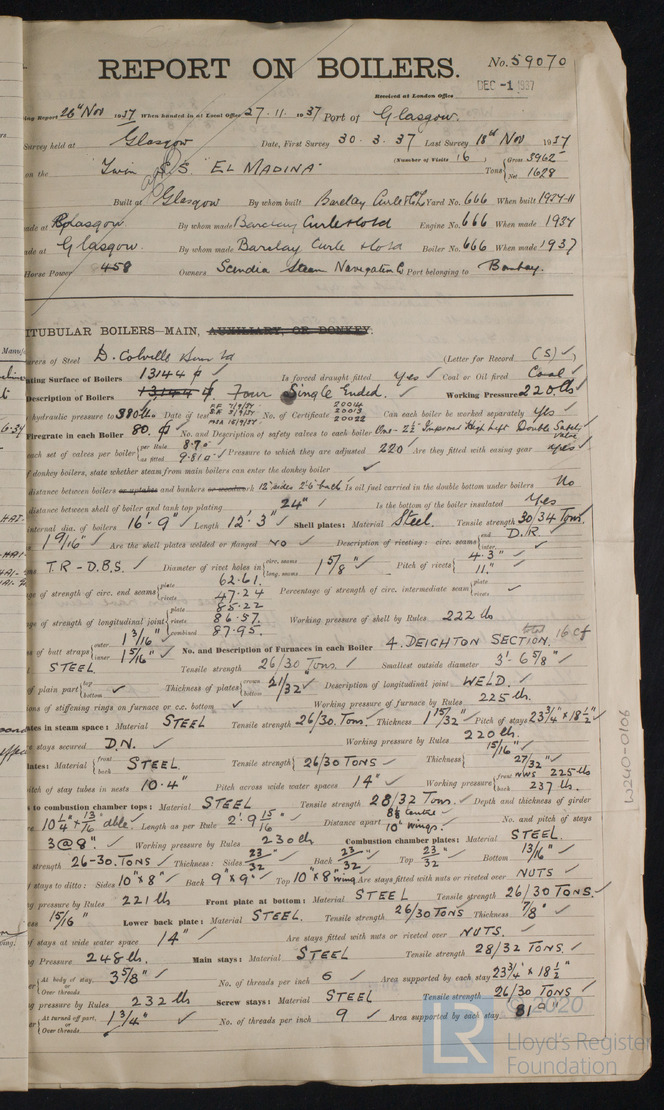 REPORT ON BOILERS.
No. 59070
DEC -1 1937
Received at London Office
ing Report 26th Nov 1937 When handed in at Local Office 27.11.1937 Port of Glasgow.
Survey held at Glasgow Date, First Survey 30.3.37 Last Survey 18th Nov 1937
(Number of Visits 16) Gross 3962
on the Twin S.S. "EL MADINA" Tons Net 1628
Built at Glasgow By whom built Barclay Curle & Co Ld Yard No. 666 When built 1937-11
ade at Glasgow By whom made Barclay Curle & Co Ld Engine No. 666 When made 1937
ade at Glasgow. By whom made Barclay Curle & Co Ld Boiler No. 666 When made 1937
Horse Power 458 Owners Scindia Steam Navigation Co Port belonging to Bombay.
ITUBULAR BOILERS—MAIN, AUXILIARY, OR DONKEY.
urers of Steel D. Colville (Letter for Record (S) ✓)
ating Surface of Boilers 13144 ✓ Is forced draught fitted Yes ✓ Coal or Oil fired Coal ✓
Description of Boilers 13144 Four Single Ended. ✓ Working Pressure 220 lbs
hydraulic pressure to 380 lbs. Date of test No. of Certificate 20014 20013 20022 Can each boiler be worked separately Yes ✓
Firegrate in each Boiler 80 No. and Description of safety valves to each boiler One - 2½" Improved High Lift Double Safety Valve
each set of valves per boiler per Rule 8.70 as fitted 9.81 ✓ Pressure to which they are adjusted 220 ✓ Are they fitted with easing gear Yes ✓
f donkey boilers, state whether steam from main boilers can enter the donkey boiler ✓
distance between boilers or uptakes and bunkers or woodwork 12" sides 2'-6" back Is oil fuel carried in the double bottom under boilers No
distance between shell of boiler and tank top plating 24" ✓ Is the bottom of the boiler insulated Yes
internal dia. of boilers 16'-9" ✓ Length 12'-3" ✓ Shell plates: Material Steel. Tensile strength 30/34 Tons.
1 9/16" ✓ Are the shell plates welded or flanged No ✓ Description of riveting: circ. seams end inter D.R. ✓
ms T.R - D.B.S. ✓ Diameter of rivet holes in circ. seams long. seams 1 5/8" ✓ Pitch of rivets 4.3" ✓ 11." ✓
ge of strength of circ. end seams plate 62.61. rivets 47.24 Percentage of strength of circ. intermediate seam plate rivets ✓
ge of strength of longitudinal joint plate 85.22 rivets 86.57. combined 87.95. Working pressure of shell by Rules 222 lb
s of butt straps outer 1 3/16" ✓ inner 1 5/16" ✓ No. and Description of Furnaces in each Boiler 4. DEIGHTON SECTION. 16 cf
STEEL Tensile strength 26/30 Tons. ✓ Smallest outside diameter 3'-6 5/8" ✓
of plain part top bottom ✓ Thickness of plates crown bottom 21/32" ✓ Description of longitudinal joint WELD. ✓
ions of stiffening rings on furnace or c.c. bottom ✓ Working pressure of furnace by Rules 225 lb.
ates in steam space: Material STEEL Tensile strength 26/30 Tons. Thickness 1 15/32" ✓ Pitch of stays 23¾" x 18½" ✓
e stays secured D.N. ✓ Working pressure by Rules 220 lb.
lates: Material front back STEEL. Tensile strength 26/30 TONS ✓ Thickness 15/16" ✓ 27/32" ✓
itch of stay tubes in nests 10.4" Pitch across wide water spaces 14" ✓ Working pressure front NWS 225 lb back 237 lb.
s to combustion chamber tops: Material STEEL Tensile strength 28/32 Tons. ✓ Depth and thickness of girder
re 10¼" x 13/16 dble. Length as per Rule 2'.9 15/16 Distance apart 8½ Centre 10" Wings. ✓ No. and pitch of stays
3 @ 8". ✓ Working pressure by Rules 230 lb Combustion chamber plates: Material STEEL.
strength 26-30. TONS ✓ Thickness: Sides 23/32" ✓ Back 23/32" ✓ Top 23/32 ✓ Bottom 13/16" ✓
f stays to ditto: Sides 10" x 8" ✓ Back 9" x 9" ✓ Top 10" x 8" wing Are stays fitted with nuts or riveted over NUTS ✓
g pressure by Rules 221 lb Front plate at bottom: Material STEEL ✓ Tensile strength 26/30 TONS. ✓
ess 15/16" ✓ Lower back plate: Material STEEL. Tensile strength 26/30 TONS Thickness 7/8" ✓
f stays at wide water space 14" ✓ Are stays fitted with nuts or riveted over NUTS. ✓
g Pressure 248 lb. Main stays: Material STEEL Tensile strength 28/32 TONS. ✓
er At body of stay, or Over threads. 3 5/8" ✓ No. of threads per inch 6 ✓ Area supported by each stay 23¾" x 18½" ✓
g pressure by Rules 232 lb Screw stays: Material STEEL Tensile strength 26/30 TONS ✓
er At turned off part, or Over threads. 1 3/4" ✓ No. of threads per inch 9 ✓ Area supported by each stay 81
W240-0106
© 2020
LR
Lloyd's Register
Foundation